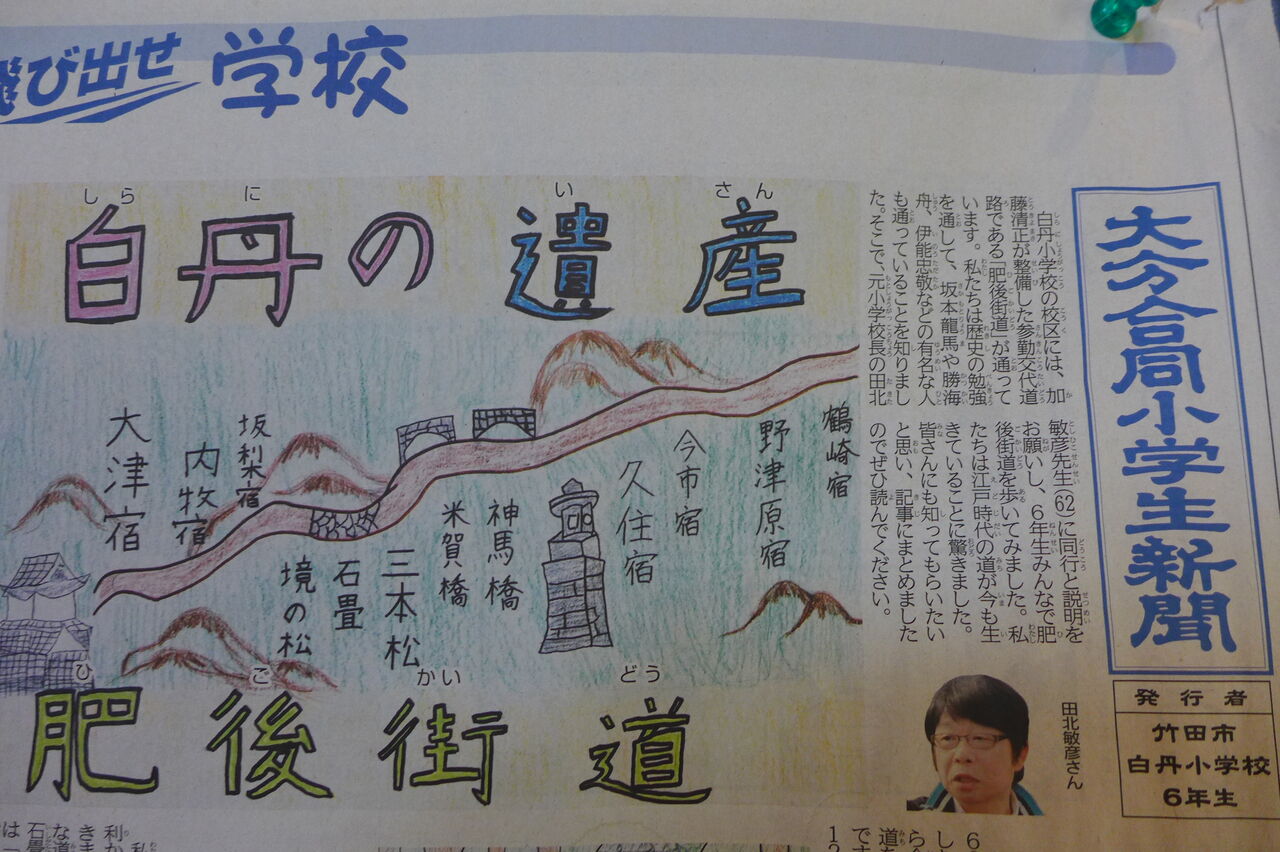 飛び出せ 学校
しらにいさん
白丹の遺産
大分合同小学生新聞
発行者
竹田市
白丹小学校
6年生
白丹小学校の校区には、加
藤清正が整備した参勤交代道
路である「肥後街道」が通って
います。私たちは歴史の勉強
を通して、坂本龍馬や勝海
舟、伊能忠敬などの有名な人
も通っていることを知りまし
た。そこで、元小学校長の田北
敏彦先生(62)に同行と説明を
お願いし、6年生みんなで肥
後街道を歩いてみました。私
たちは江戸時代の道が今も生
きていることに驚きました。
皆さんにも知ってもらいたい
と思い、記事にまとめました
のでぜひ読んでください。
田北敏彦さん
鶴崎宿
野津原宿
今市宿
久住宿
神馬橋
米賀橋
三本松
石畳
境の松
坂梨宿
内牧宿
大津宿
ひごかいどう
肥後街道